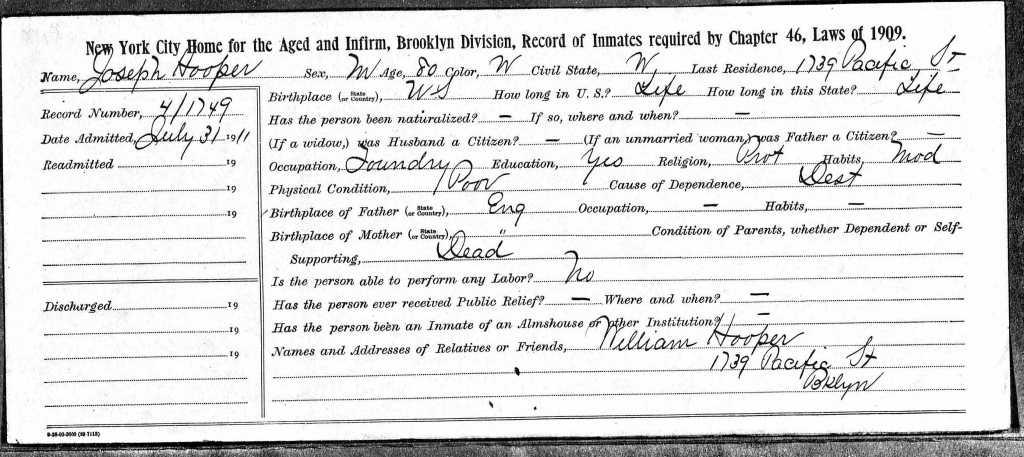 New York City Home for the Aged and Infirm, Brooklyn Division, Record of Inmates required by Chapter 46, Laws of 1909.
Name, Joseph Hooper Sex, M Age, 80 Color, W Civil State, W Last Residence, 1739 Pacific St
Record Number, 4/1749
Date Admitted, July 31 1911
Readmitted 19
19
19
Discharged 19
19
19
Birthplace (State or Country), US How long in U. S.? Life How long in this State? Life
Has the person been naturalized? — If so, where and when? —
(If a widow,) was Husband a Citizen? — (If an unmarried woman,) was Father a Citizen? —
Occupation, Foundry Education, Yes Religion, Prot Habits, Mod
Physical Condition, Poor Cause of Dependence, Dest
Birthplace of Father (State or Country), Eng Occupation, — Habits, —
Birthplace of Mother (State or Country), " Condition of Parents, whether Dependent or Self-
Supporting, Dead
Is the person able to perform any Labor? No
Has the person ever received Public Relief? — Where and when? —
Has the person been an Inmate of an Almshouse or other Institution? —
Names and Addresses of Relatives or Friends, William Hooper
1739 Pacific St
Bklyn